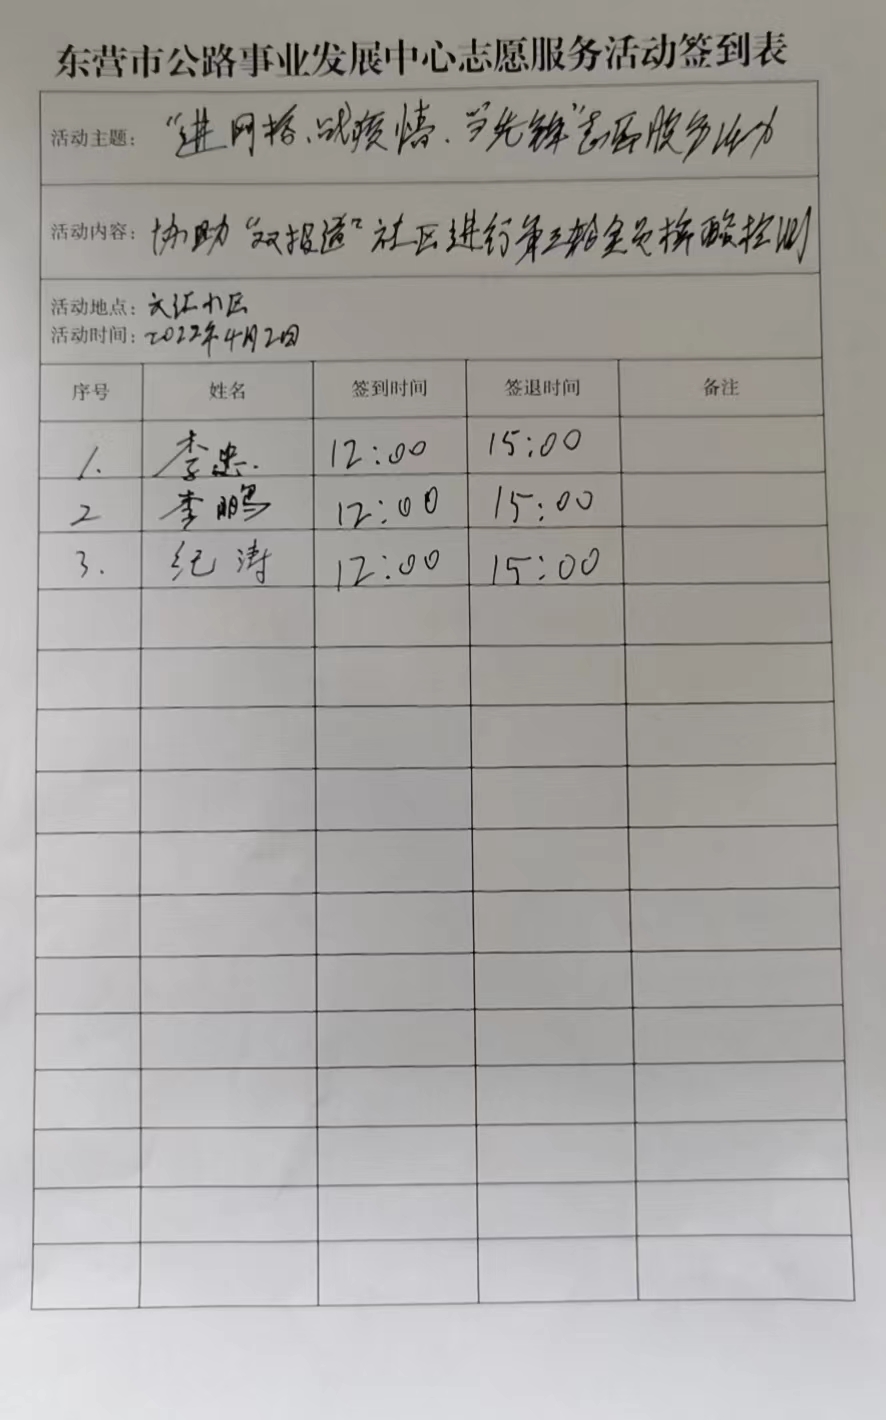 东营市公路事业发展中心志愿服务活动签到表
活动主题：“进网格、战疫情、当先锋”志愿服务活动
活动内容：协助“双报道”社区进行第三轮全员核酸检测
活动地点：文汇小区
活动时间：2022年4月2日
序号 姓名 签到时间 签退时间 备注
1. 李忠 12:00 15:00
2 李鹏 12:00 15:00
3. 纪涛 12:00 15:00